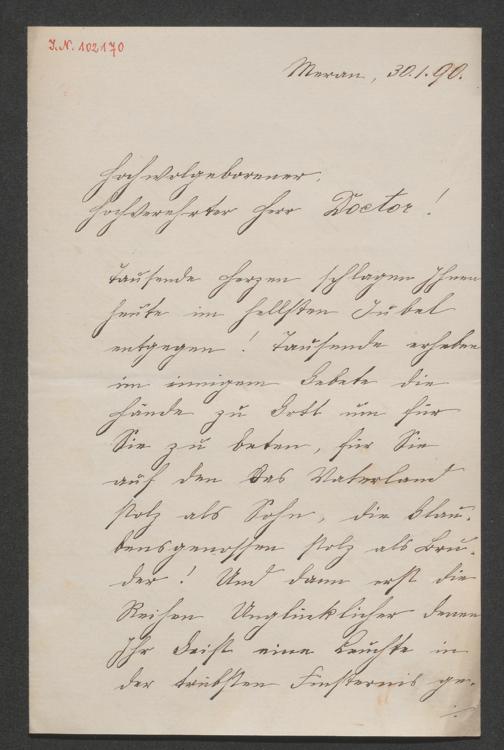 J.N. 102170
Meran, 30.1.90.
Hochwolgeborener,
Hochverehrter Herr Doctor!
Tausende Herzen schlagen Ihnen
heute im hellsten Jubel
entgegen! Tausende erheben
im innigem Gebete die
Hände zu Gott um für
Sie zu beten, für Sie
auf den das Vaterland
stolz als Sohn, die Glau-
bensgenossen stolz als Bru-
der! Und dann erst die
Reihen Unglücklicher denen
Ihr Geist eine Leuchte in
der trübsten Finsternis ge-